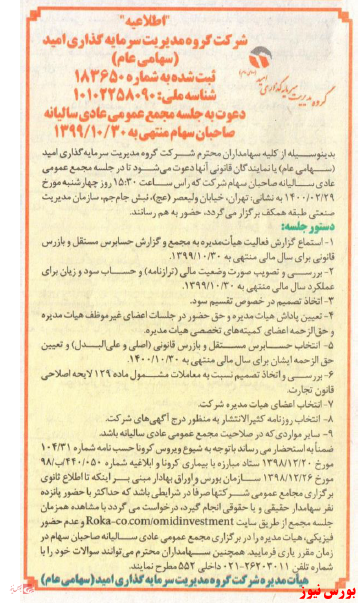 "اطلاعیه"
شرکت گروه مدیریت سرمایه گذاری امید
(سهامی عام)
ثبت شده به شماره ۱۸۳۶۵۰
شناسه ملی: ۱۰۱۰۲۲۵۸۰۹۰
دعوت به جلسه مجمع عمومی عادی سالیانه
صاحبان سهام منتهی به ۱۳۹۹/۱۰/۳۰
گروه مدیریت سرمایه گذاری امید
بدینوسیله از کلیه سهامداران محترم شرکت گروه مدیریت سرمایه گذاری امید
(سهامی عام) یا نمایندگان قانونی آنها دعوت می‌شود تا در جلسه مجمع عمومی
عادی سالیانه صاحبان سهام شرکت که راس ساعت ۱۵:۳۰ روز چهارشنبه مورخ
۱۴۰۰/۰۲/۲۹ به نشانی: تهران، خیابان ولیعصر (عج)، نبش جام‌جم، سازمان مدیریت
صنعتی طبقه همکف برگزار می‌گردد، حضور به هم رسانند.
دستور جلسه:
۱- استماع گزارش فعالیت هیأت‌مدیره به مجمع و گزارش حسابرس مستقل و بازرس
قانونی برای سال مالی منتهی به ۱۳۹۹/۱۰/۳۰.
۲- بررسی و تصویب صورت وضعیت مالی (ترازنامه) و حساب سود و زیان برای
عملکرد سال مالی منتهی به ۱۳۹۹/۱۰/۳۰.
۳- اتخاذ تصمیم در خصوص تقسیم سود.
۴- تعیین پاداش هیات مدیره و حق حضور در جلسات اعضای غیرموظف هیات مدیره
و حق الزحمه اعضای کمیته‌های تخصصی هیات مدیره.
۵- انتخاب حسابرس مستقل و بازرس قانونی (اصلی و علی‌البدل) و تعیین
حق الزحمه ایشان برای سال مالی منتهی به ۱۴۰۰/۱۰/۳۰.
۶- بررسی و اتخاذ تصمیم نسبت به معاملات مشمول ماده ۱۲۹ لایحه اصلاحی
قانون تجارت.
۷- انتخاب اعضای هیات مدیره شرکت.
۸- انتخاب روزنامه کثیرالانتشار به منظور درج آگهی‌های شرکت.
۹- سایر مواردی که در صلاحیت مجمع عمومی عادی سالیانه باشد.
ضمناً به استحضار می رساند باتوجه به شیوع ویروس کرونا حسب نامه شماره ۱۰۴/۳۱
مورخ ۱۳۹۸/۱۲/۲۰ ستاد مبارزه با بیماری کرونا و ابلاغیه شماره ۴۴۰/۰۵۰/ب۹۸
مورخ ۱۳۹۸/۱۲/۲۶ سازمان بورس و اوراق بهادار مبنی بر اینکه تا اطلاع ثانوی
برگزاری مجامع عمومی شرکتها صرفاً در شرایطی باشد که حداکثر با حضور پانزده
نفر سهامدار حقیقی و یا حقوقی انجام گیرد، درخواست می گردد با مشاهده همزمان
جلسه مجمع از طریق سایت Roka-co.com/omidinvestment و عدم حضور
فیزیکی، هیات مدیره را در برگزاری مجمع عمومی عادی سالیانه صاحبان سهام در
زمان مقرر یاری فرمایید. همچنین سهامداران محترم می‌توانند سوالات خود را با
شماره تلفن ۲۶۲۰۳۰۱۱-۰۲۱ داخلی ۵۵۲ مطرح نمایند.
هیأت مدیره شرکت گروه مدیریت سرمایه گذاری امید (سهامی عام)
بورس نیوز